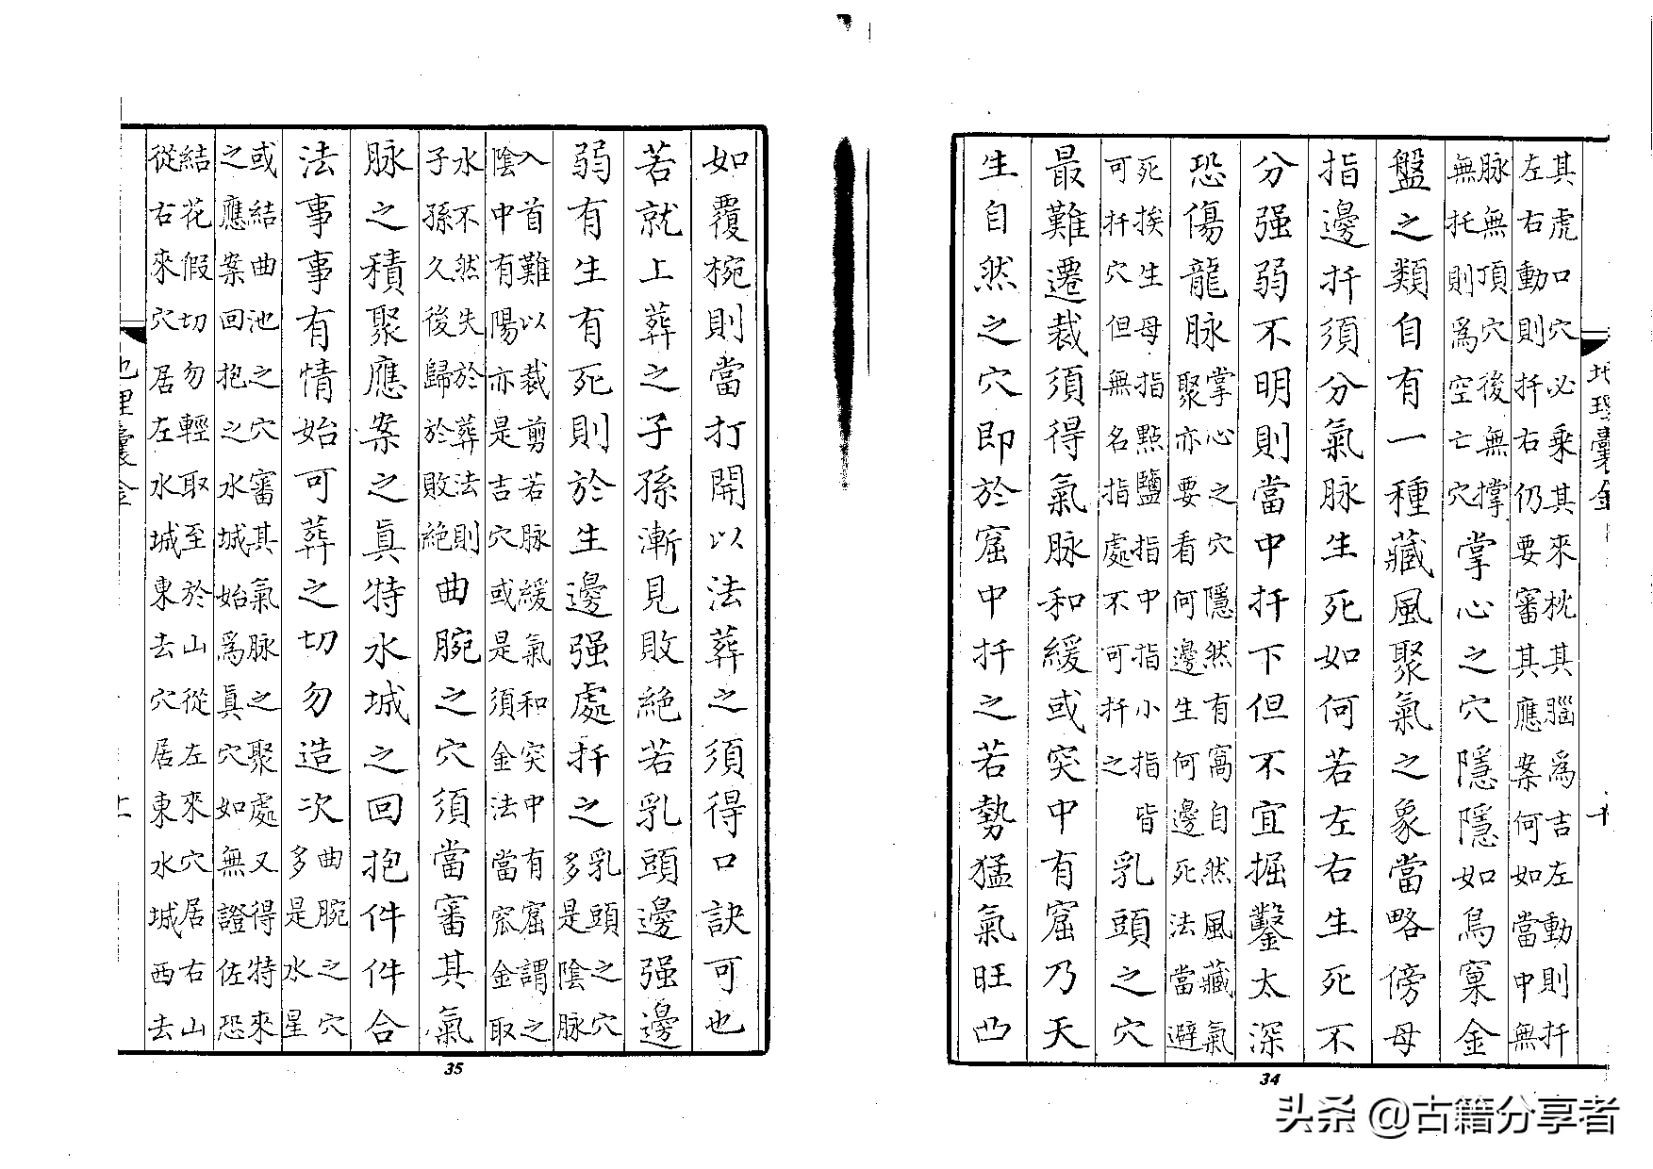 地理囊金
十
其虎口穴必乘其來枕其腦爲吉左動則扦
左右動則扦右仍要審其應案何如當中無
脉無頂穴後無撐
無托則爲空亡穴
掌心之穴隱隱如鳥窠金
盤之類自有一種藏風聚氣之象當略傍母
指邊扦須分氣脉生死如何若左右生死不
分强弱不明則當中扦下但不宜掘鑿太深
恐傷龍脉
掌心之穴隱然有窩自然風藏氣
聚亦要看何邊生何邊死法當避
死挨生母指點鹽指中指小指皆
可扦穴但無名指處不可扦之
乳頭之穴
最難遷裁須得氣脉和緩或突中有窟乃天
生自然之穴即於窟中扦之若勢猛氣旺凸
34
如覆椀則當打開以法葬之須得口訣可也
若就上葬之子孫漸見敗絕若乳頭邊强邊
弱有生有死則於生邊强處扦之
乳頭之穴
多是陰脉
入首難以裁剪若脉緩氣和突中有窟謂之
陰中有陽亦是吉穴或是須金法當窊金取
水不然失於葬法則
子孫久後歸於敗絕
曲腕之穴須當審其氣
脉之積聚應案之真特水城之回抱件件合
法事事有情始可葬之切勿造次
曲腕之穴
多是水星
或結曲池之穴審其氣脉之聚處又得特來
之應案回抱之水城始爲真穴如無證佐恐
結花假切勿輕取至於山從左來穴居右山
從右來穴居左水城東去穴居東水城西去
地理囊金
35
头条 @古籍分享者